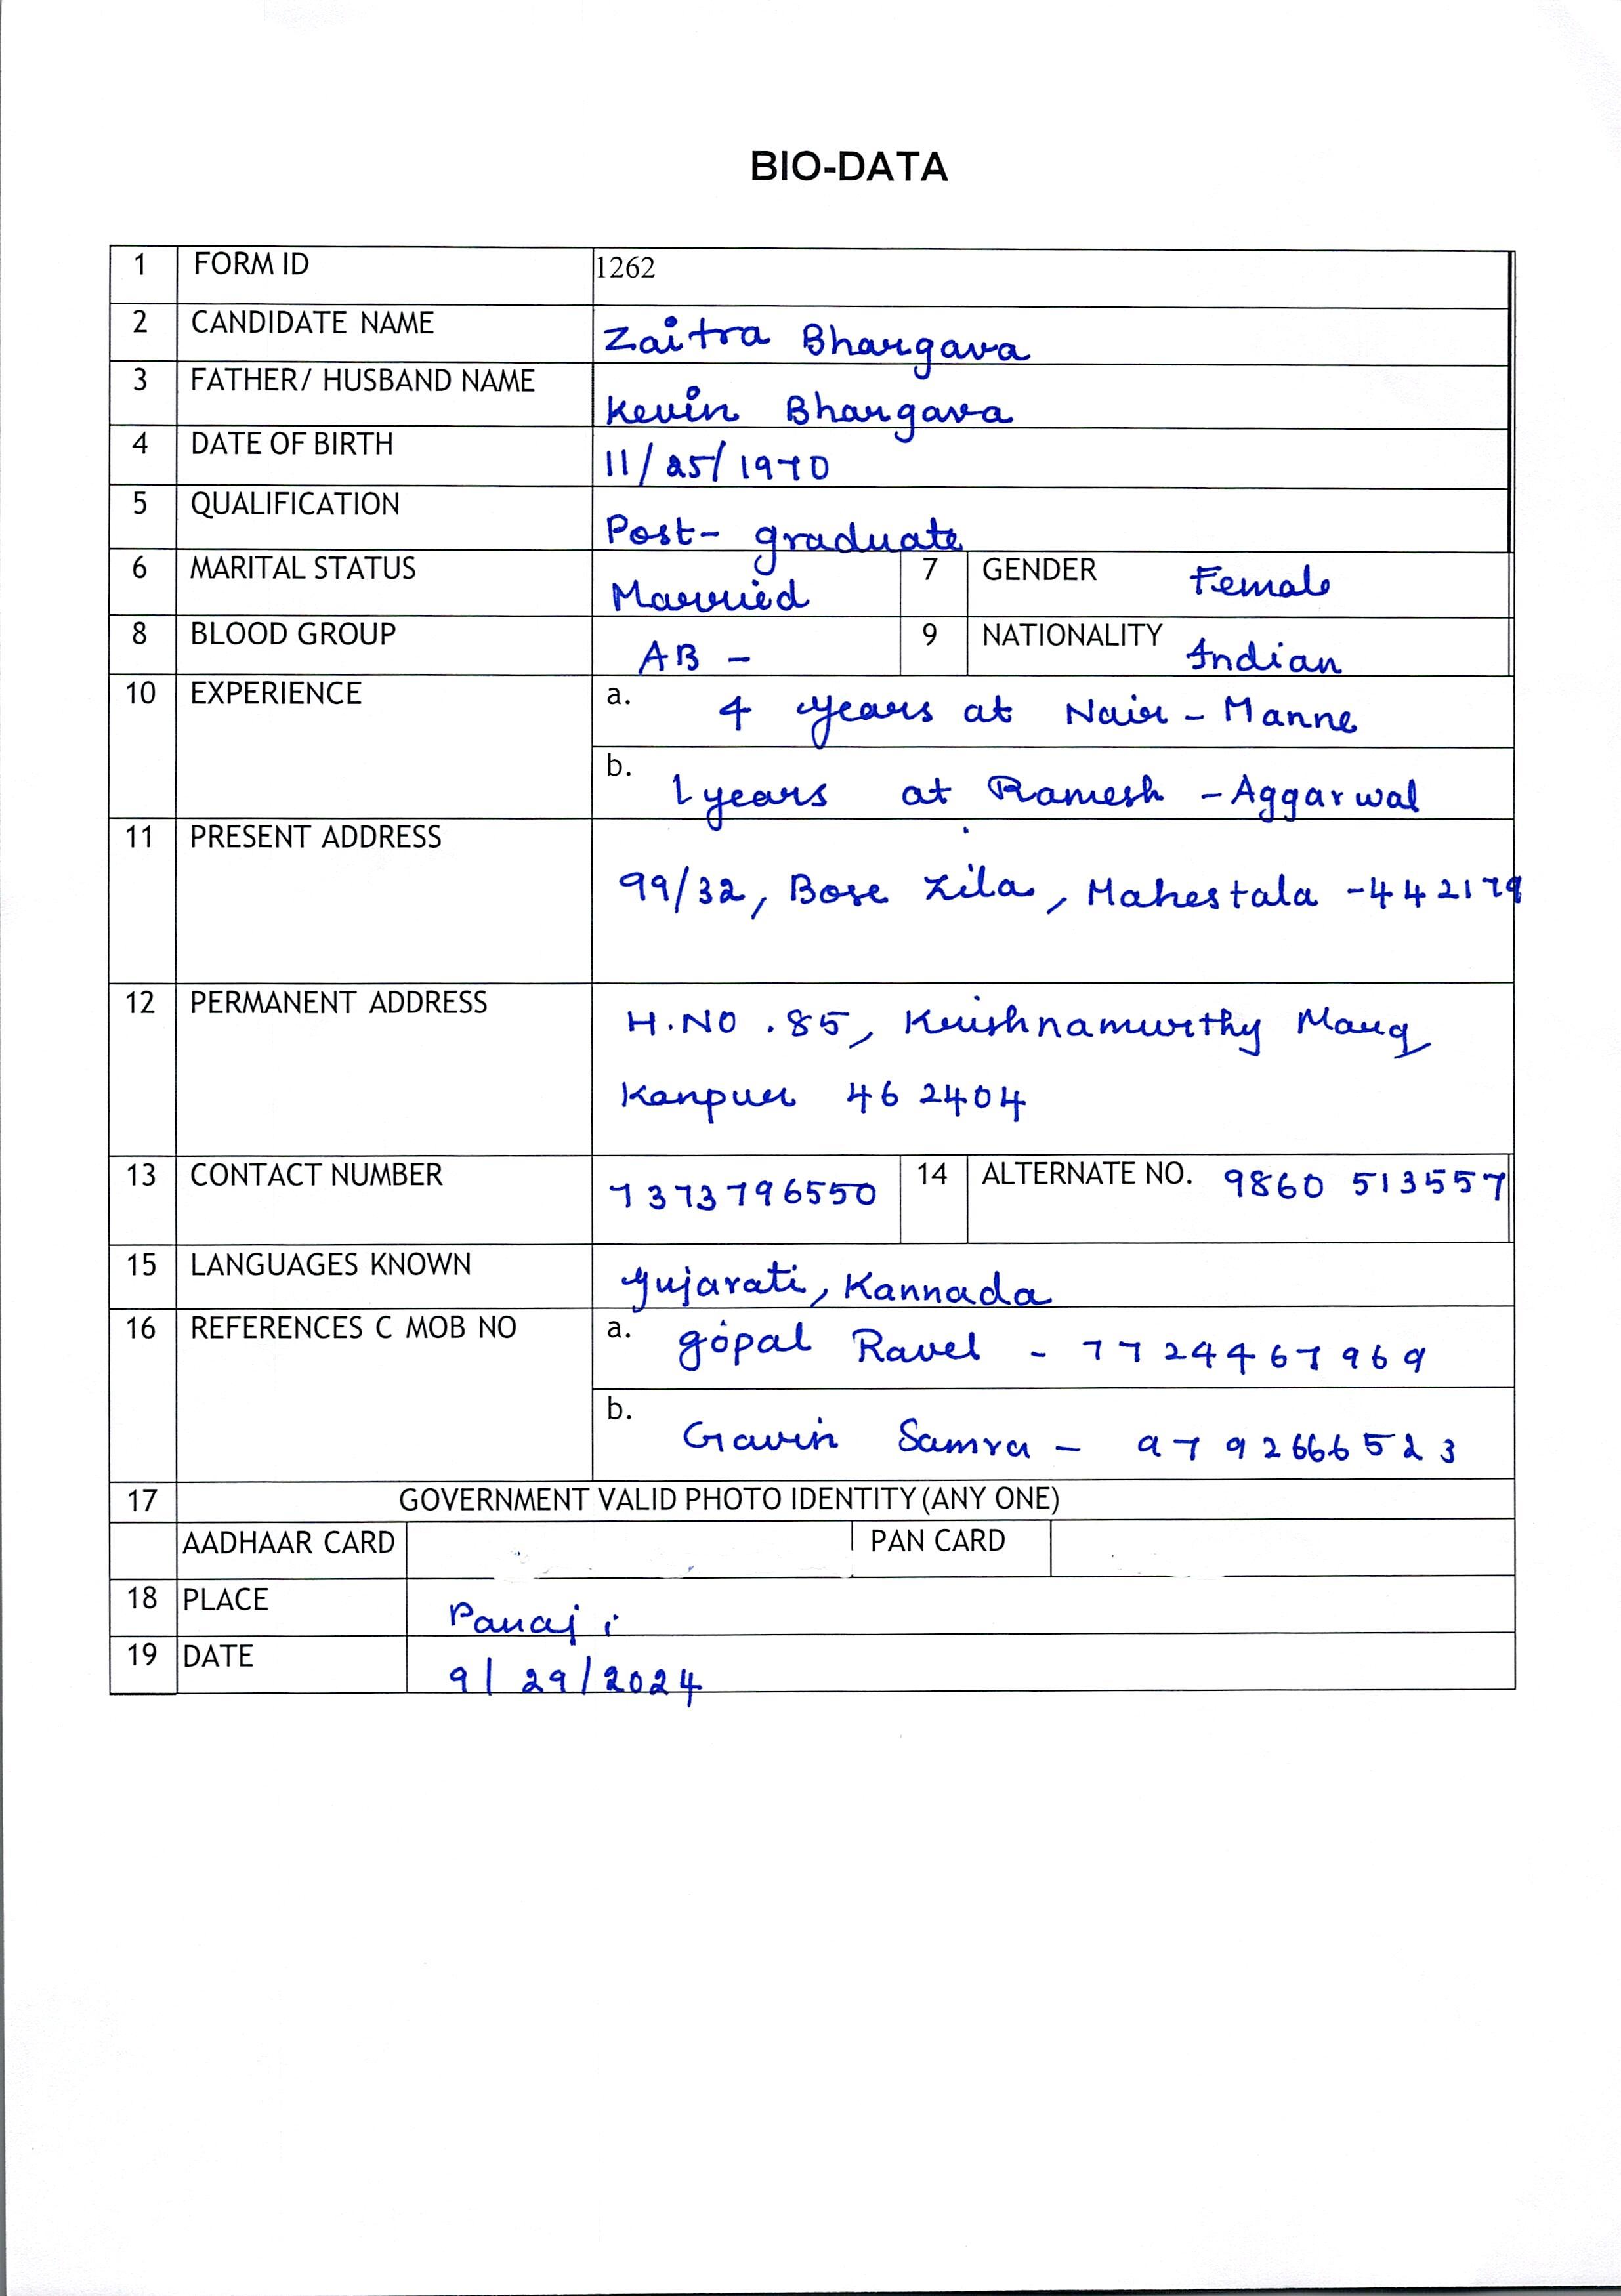 BIO-DATA
1 FORM ID 1262
2 CANDIDATE NAME Zaitra Bhargava
3 FATHER/ HUSBAND NAME Kevin Bhargava
4 DATE OF BIRTH 11/25/1970
5 QUALIFICATION Post- graduate
6 MARITAL STATUS Married 7 GENDER Female
8 BLOOD GROUP AB - 9 NATIONALITY Indian
10 EXPERIENCE a. 4 years at Nair - Manne
b. 1 years at Ramesh - Aggarwal
11 PRESENT ADDRESS
99/32, Bose Zila, Mahestala - 442179
12 PERMANENT ADDRESS H.NO . 85, Krishnamurthy Marg
Kanpur 462404
13 CONTACT NUMBER 7373796550 14 ALTERNATE NO. 9860 513557
15 LANGUAGES KNOWN Gujarati, Kannada
16 REFERENCES C MOB NO a. Gopal Ravel - 7724467969
b. Gavin Samra - 9792666523
17 GOVERNMENT VALID PHOTO IDENTITY (ANY ONE)
AADHAAR CARD PAN CARD
18 PLACE Panaji
19 DATE 9/29/2024